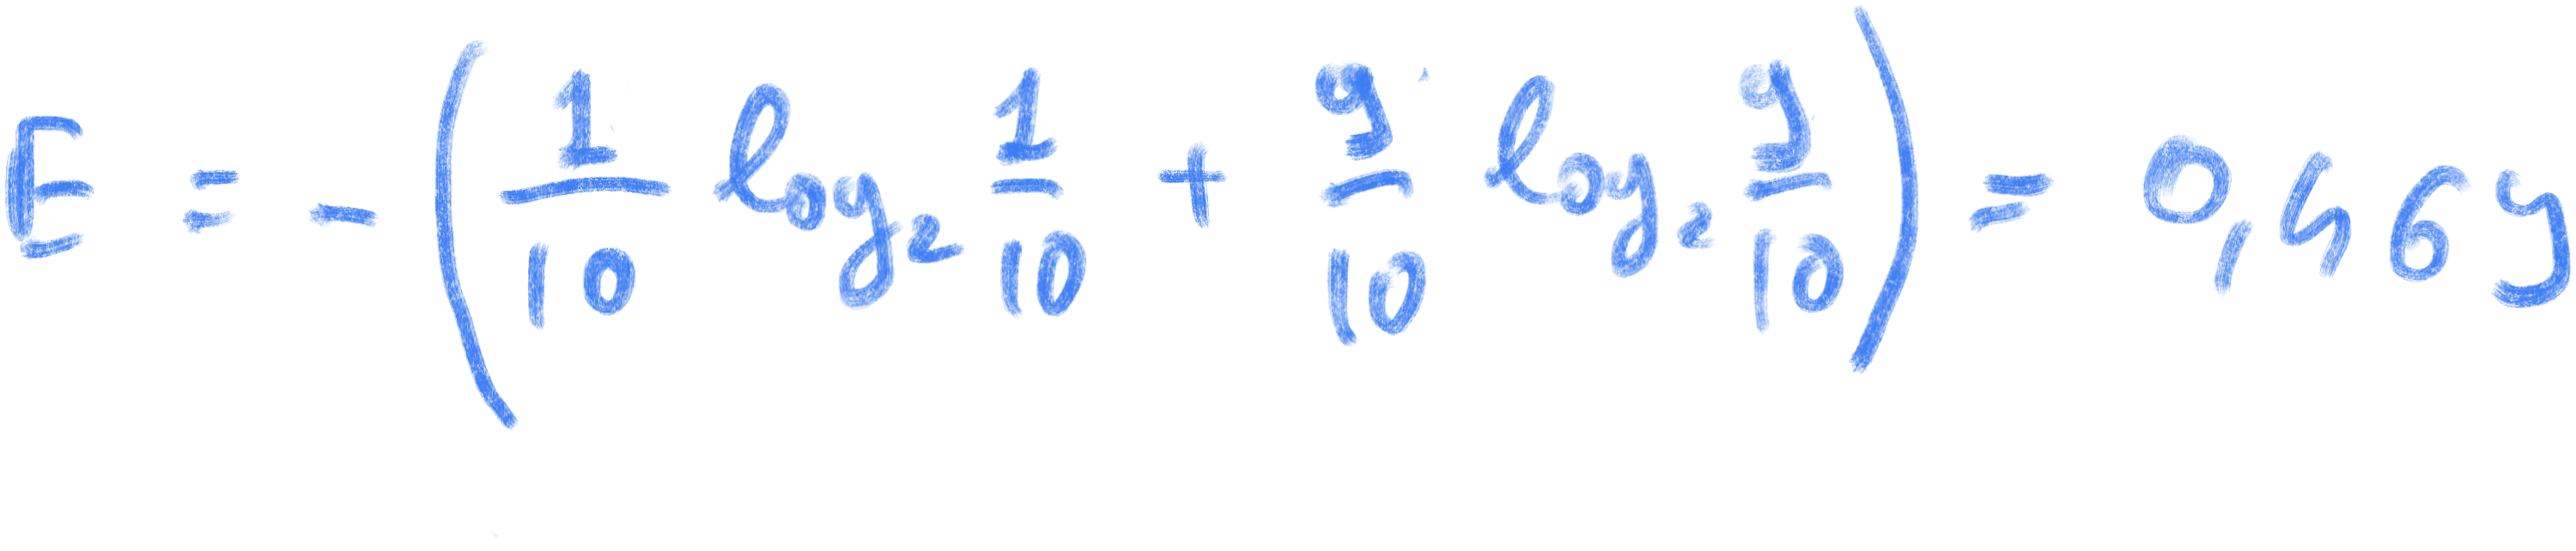 E = - ( 1/10 log₂ 1/10 + 9/10 log₂ 9/10 ) = 0,469